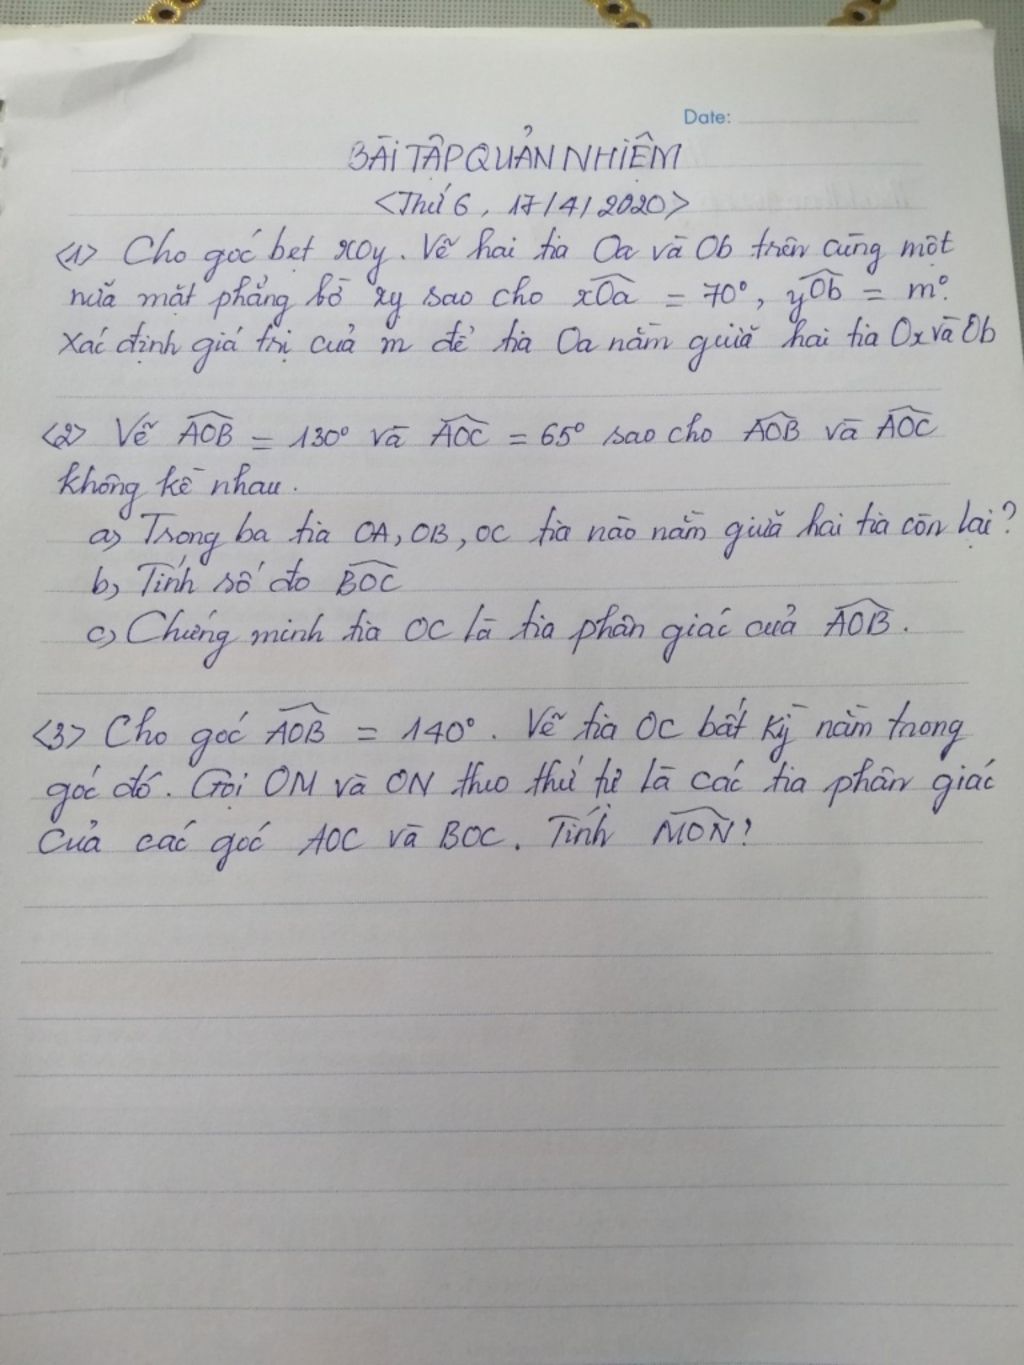 Date:
BÀI TẬP QUẢN NHIỆM
<Thứ 6, 17/4/2020>
<1> Cho góc bẹt xOy. Vẽ hai tia Oa và Ob trên cùng một
nửa mặt phẳng bờ xy sao cho xOa = 70°, yOb = m°.
Xác định giá trị của m để tia Oa nằm giữa hai tia Ox và Ob
<2> Vẽ AOB = 130° và AOC = 65° sao cho AOB và AOC
không kề nhau.
a, Trong ba tia OA, OB, OC tia nào nằm giữa hai tia còn lại?
b, Tính số đo BOC
c, Chứng minh tia OC là tia phân giác của AOB.
<3> Cho góc AOB = 140°. Vẽ tia OC bất kỳ nằm trong
góc đó. Gọi OM và ON theo thứ tự là các tia phân giác
của các góc AOC và BOC. Tính MON?